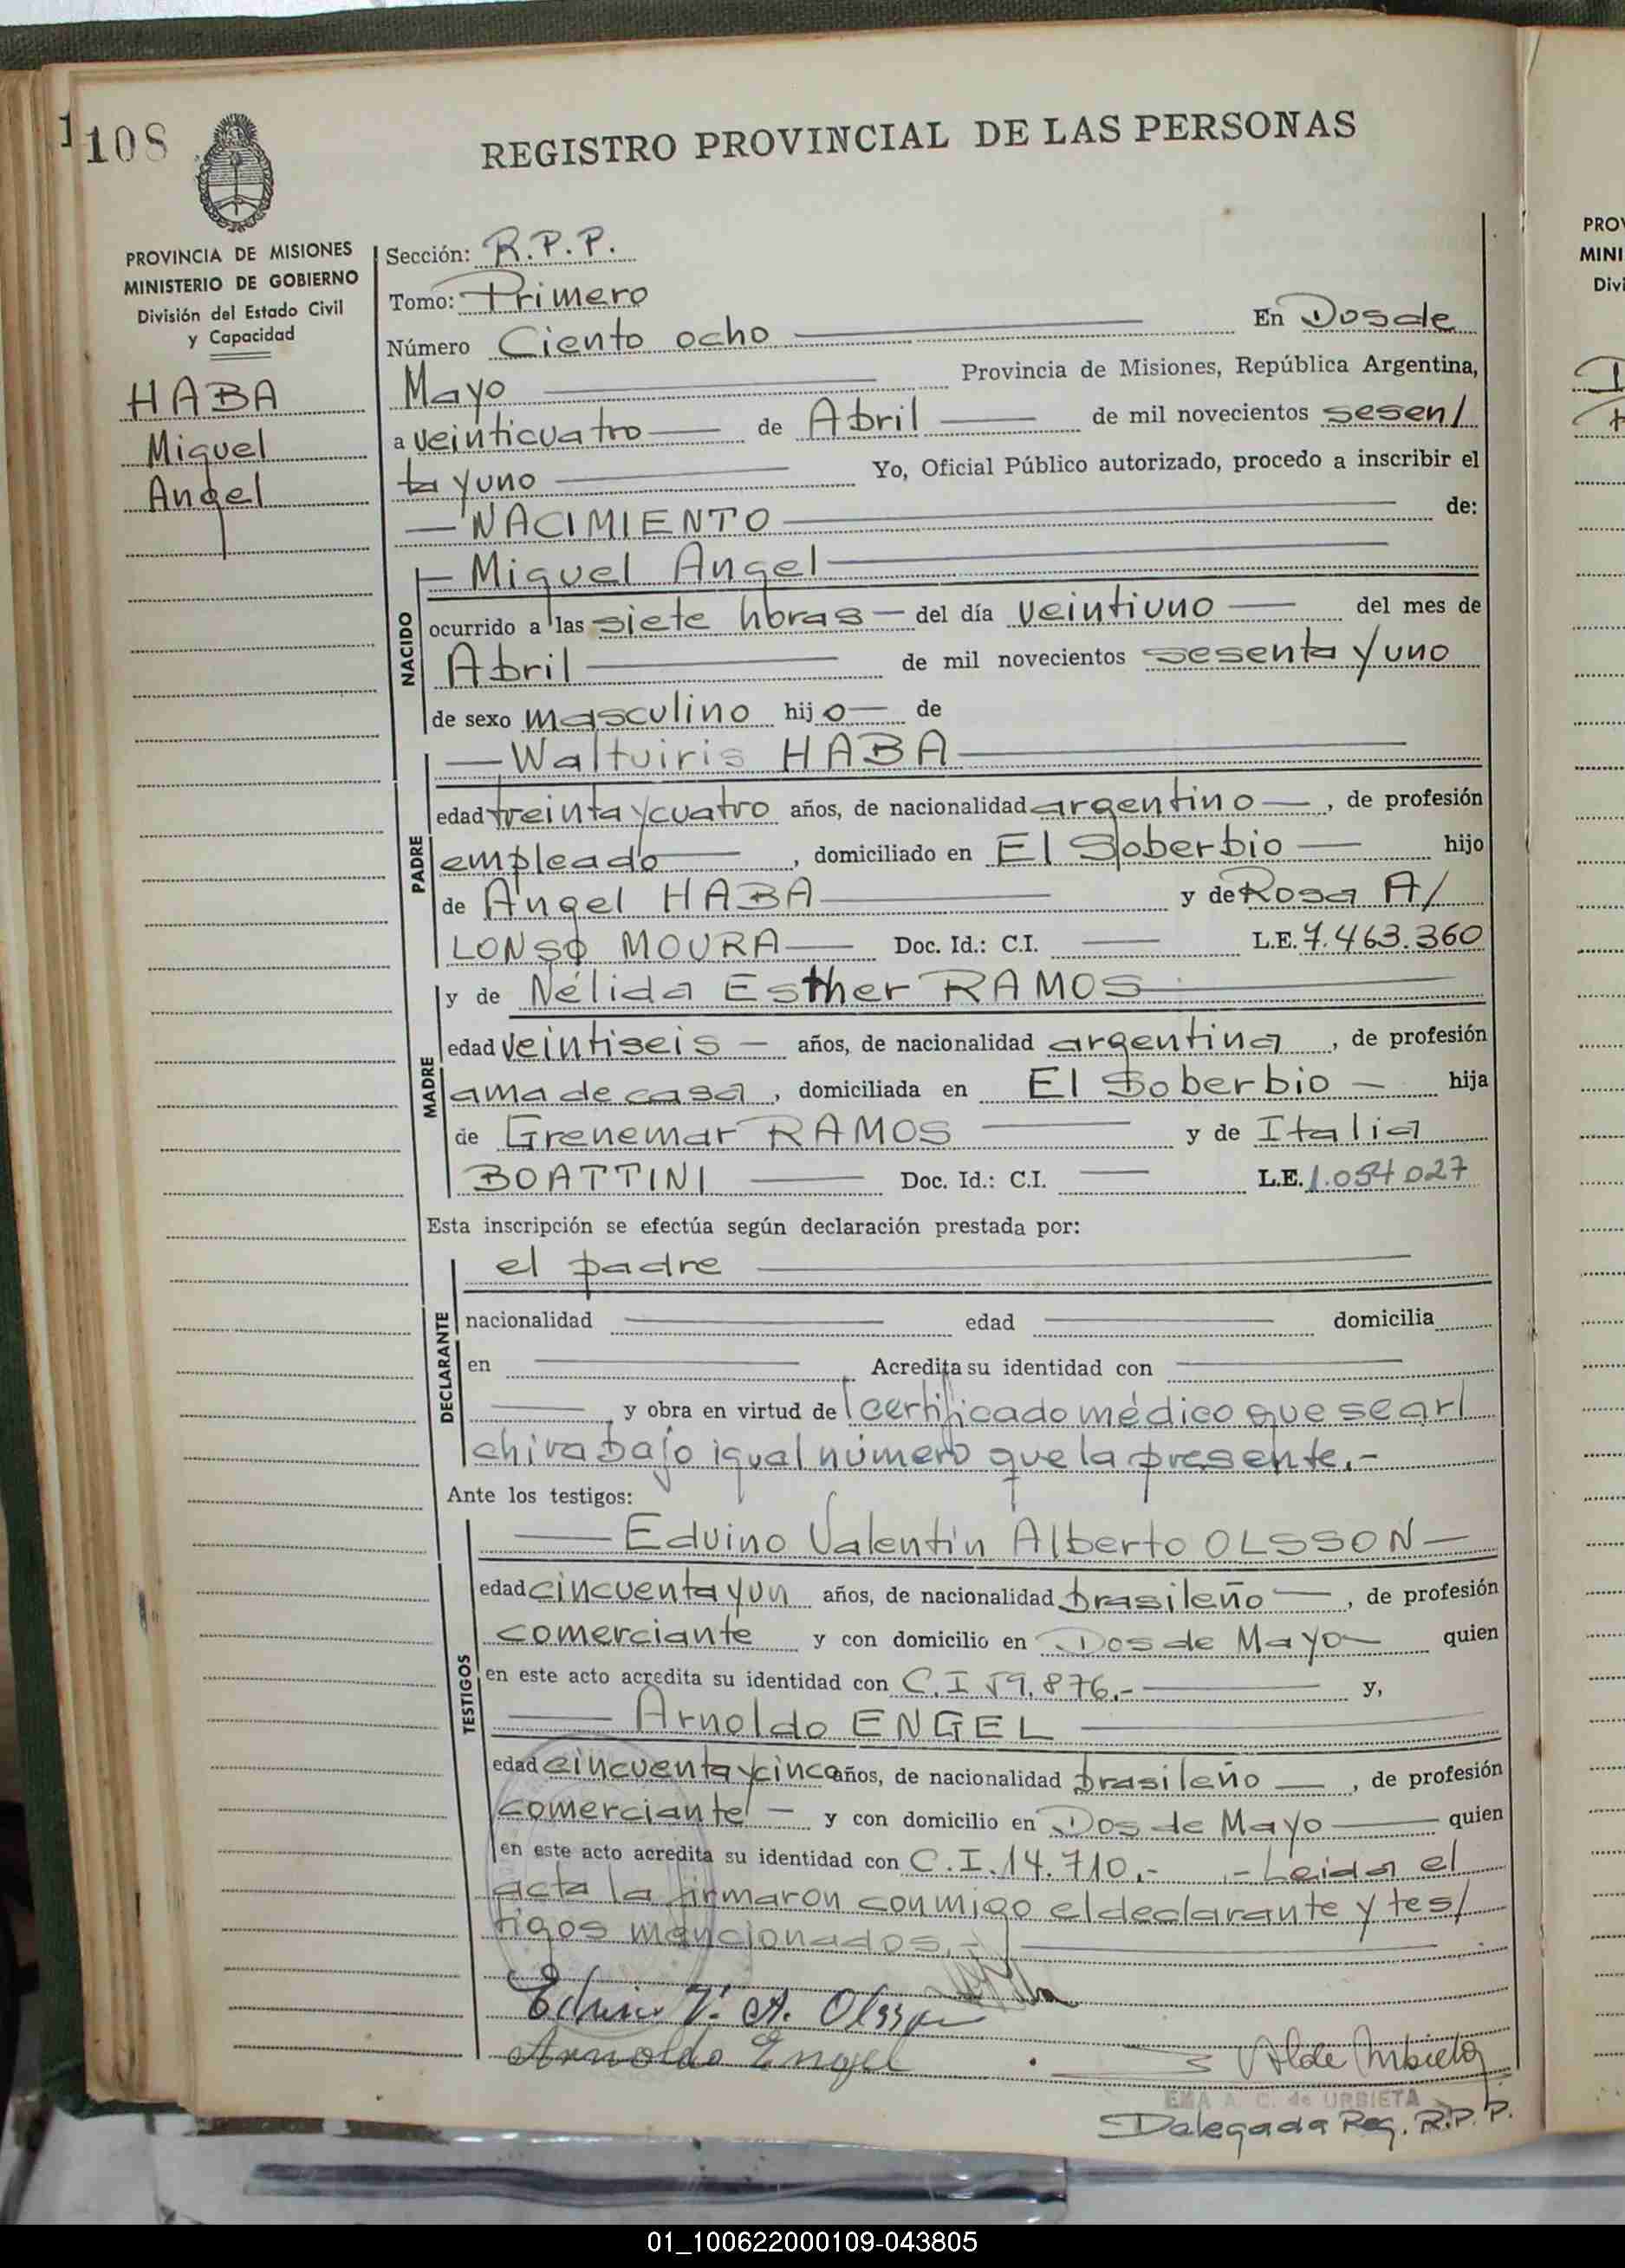 1108
REGISTRO PROVINCIAL DE LAS PERSONAS
PROVINCIA DE MISIONES
MINISTERIO DE GOBIERNO
División del Estado Civil
y Capacidad
HABA
Miguel
Angel
Sección: R.P.P.
Tomo: Primero
Número Ciento ocho En Dos de
Mayo Provincia de Misiones, República Argentina,
a veinticuatro de Abril de mil novecientos sesen/
ta y uno Yo, Oficial Público autorizado, procedo a inscribir el
NACIMIENTO de:
NACIDO
Miguel Angel
ocurrido a las siete horas del día veintiuno del mes de
Abril de mil novecientos sesenta y uno
de sexo masculino hijo de
PADRE
Waltuiris HABA
edad treinta y cuatro años, de nacionalidad argentino, de profesión
empleado, domiciliado en El Soberbio hijo
de Angel HABA y de Rosa A/
LONSO MOURA Doc. Id.: C.I. L.E. 7.463.360
MADRE
y de Nélida Esther RAMOS
edad veintiseis años, de nacionalidad argentina, de profesión
ama de casa, domiciliada en El Soberbio hija
de Grenemar RAMOS y de Italia
BOATTINI Doc. Id.: C.I. L.E. 1.054027
Esta inscripción se efectúa según declaración prestada por:
DECLARANTE
el padre
nacionalidad edad domicilia
en Acredita su identidad con
y obra en virtud de certificado médico que se ar/
chiva bajo igual número que la presente.-
Ante los testigos:
TESTIGOS
Eduino Valentín Alberto OLSSON
edad cincuenta y un años, de nacionalidad brasileño, de profesión
comerciante y con domicilio en Dos de Mayo quien
en este acto acredita su identidad con C.I 59.876.- y,
Arnoldo ENGEL
edad cincuenta y cinco años, de nacionalidad brasileño, de profesión
comerciante - y con domicilio en Dos de Mayo quien
en este acto acredita su identidad con C.I.14.710.- .-Leida el
acta la firmaron conmigo el declarante y tes/
tigos mencionados.-
Eduino V. A. Olsson
Arnoldo Engel
de Urbieta
EMA A. C. de URBIETA
Delegada Reg. R.P.P.
PROV
MINI
Divi
01_100622000109-043805